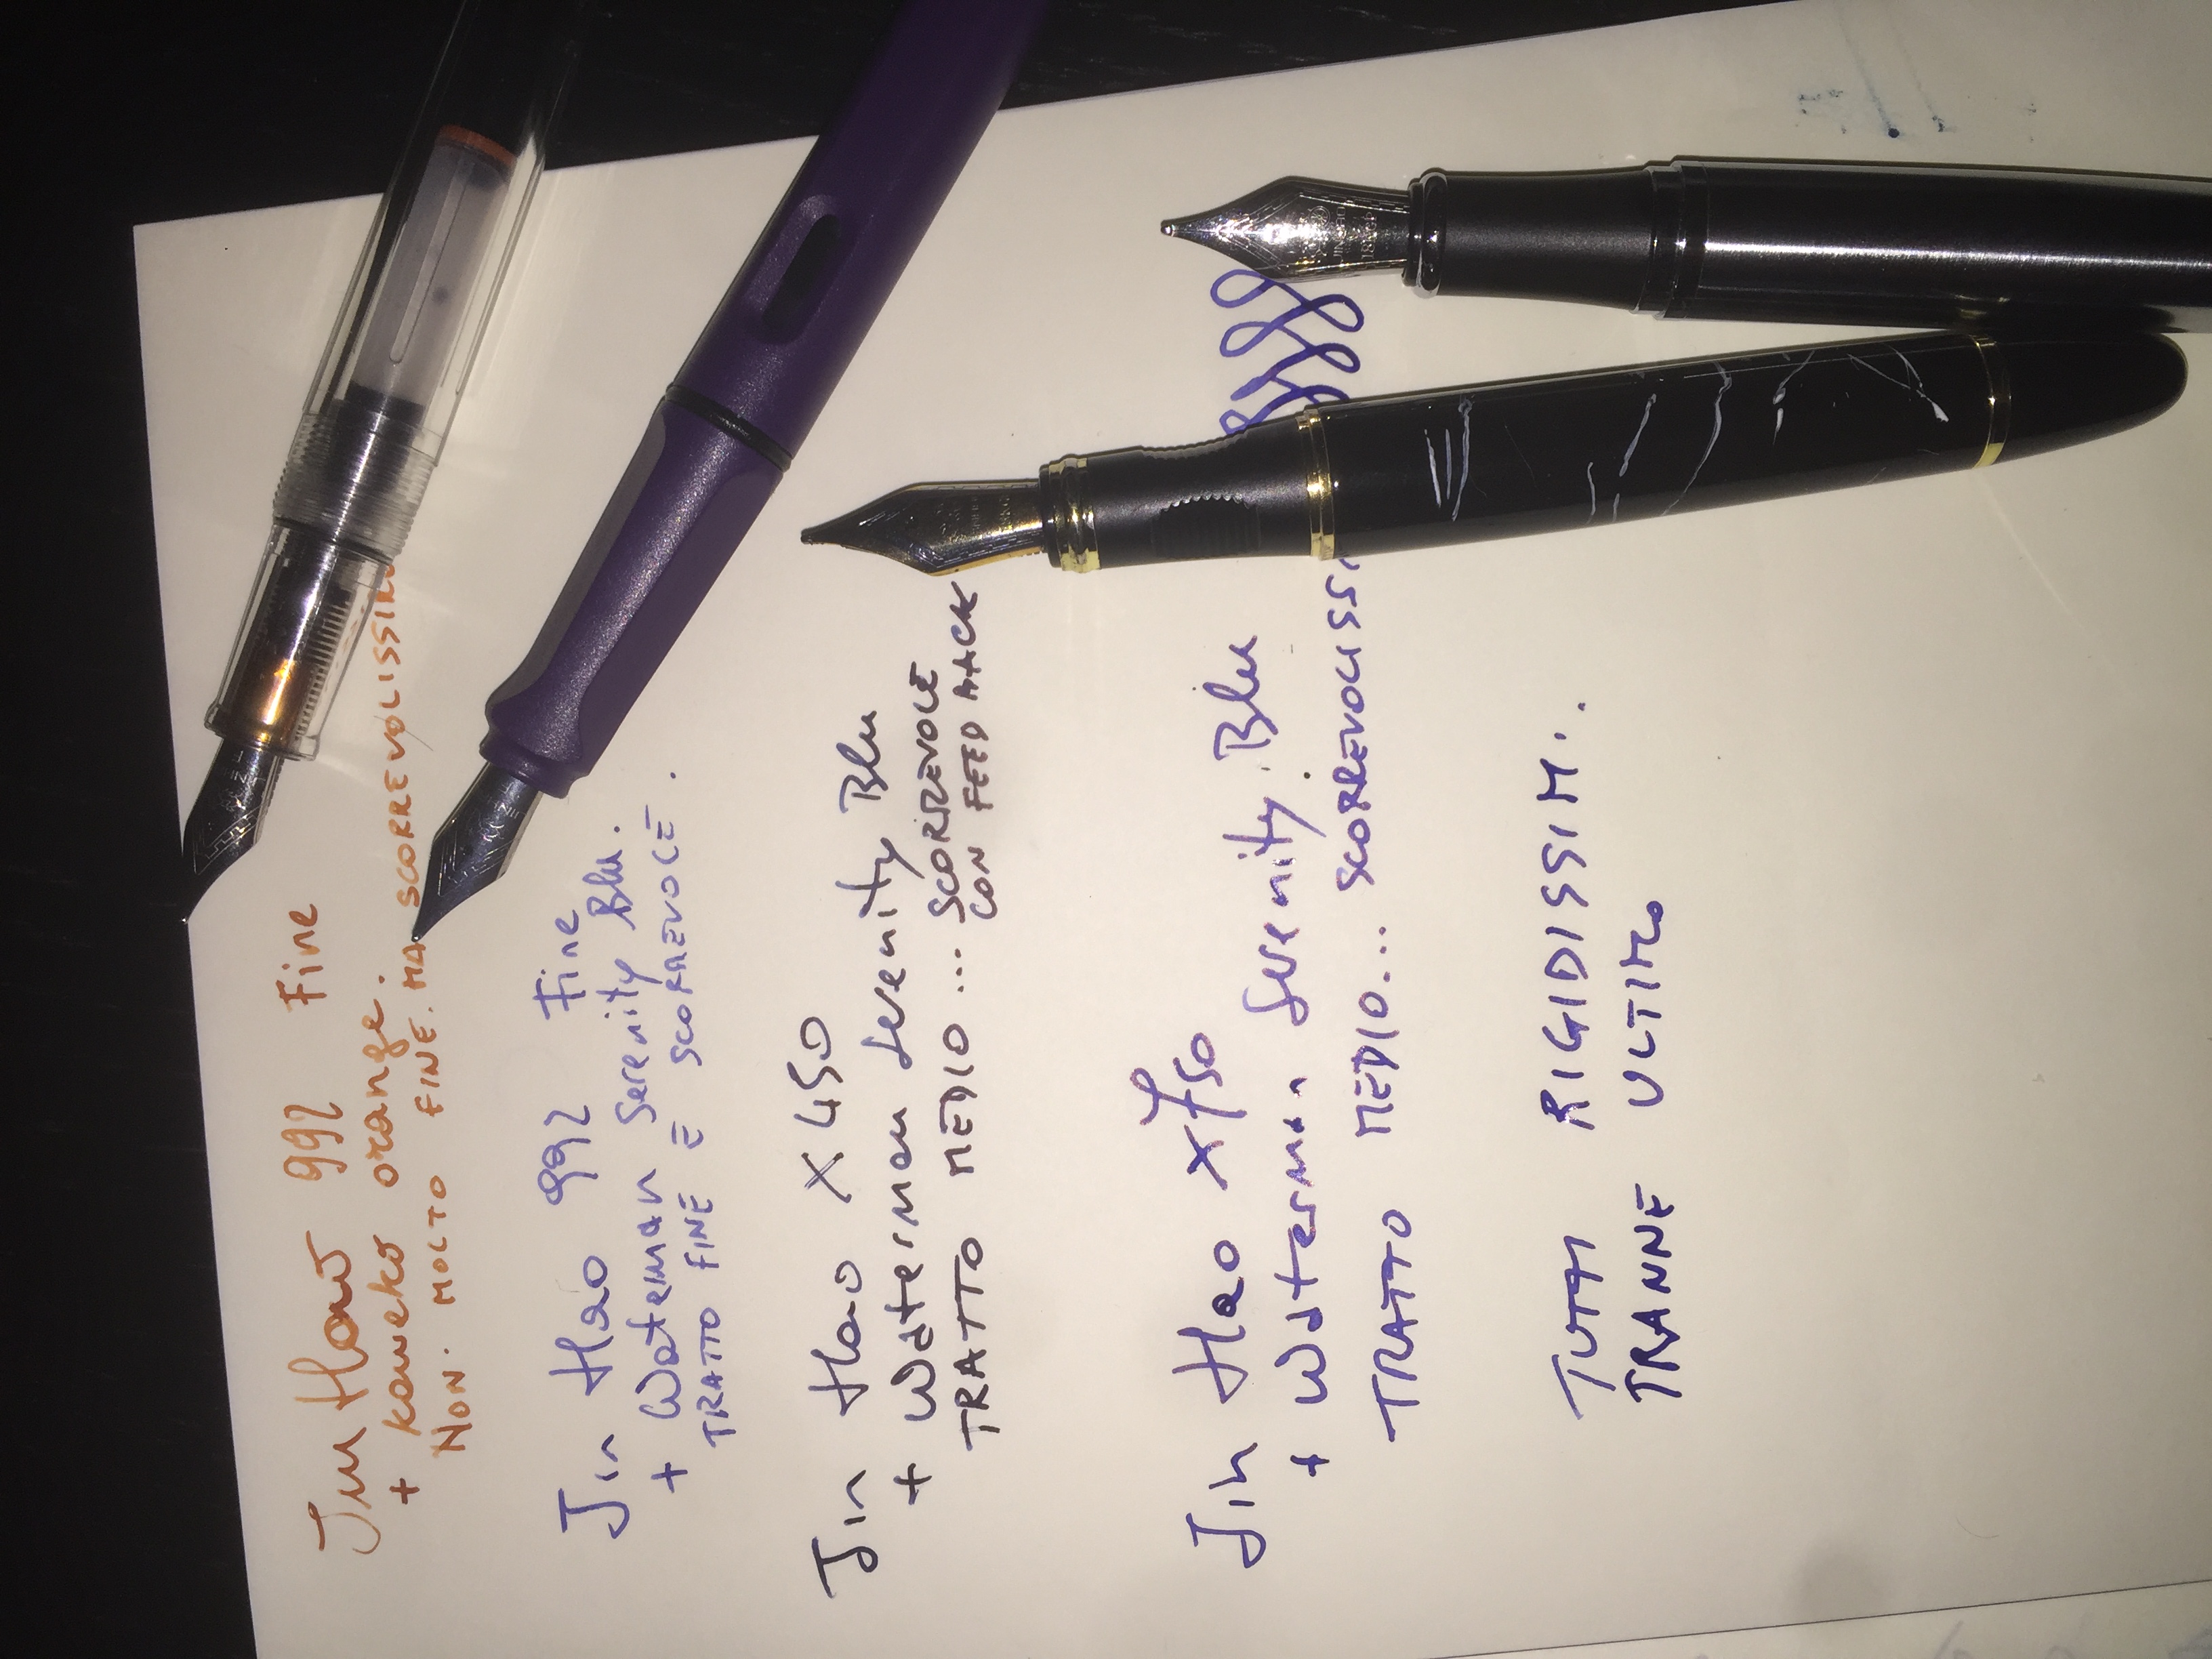 Jin Hao 992 Fine
+ kaweko orange.
NON. MOLTO FINE. MA SCORREVOLISSIM
Jin Hao 992 Fine
+ Waterman Serenity Blu.
TRATTO FINE E SCORREVOLE.
Jin Hao X450
+ Waterman Serenity Blu
TRATTO MEDIO... SCORREVOLE
CON FEED BACK
Jin Hao X750
+ Waterman Serenity Blu
TRATTO MEDIO... SCORREVOLISSI
TUTTI RIGIDISSIMI.
TRANNE ULTIMO